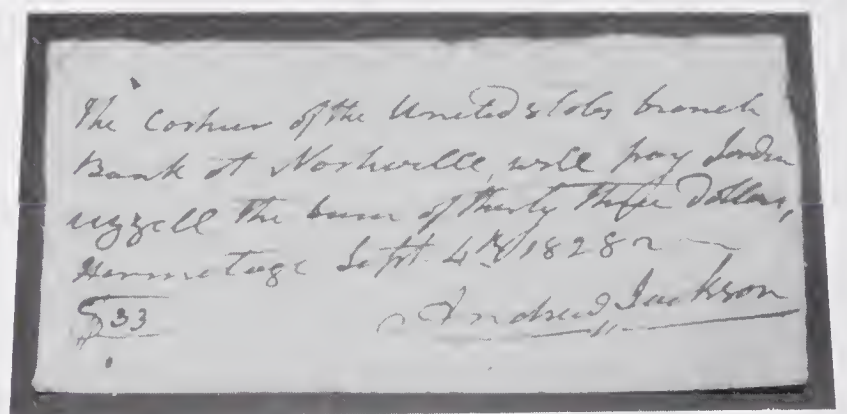 The Cashier of the United States branch
Bank at Nashville, will pay Jordan
uzzell the sum of thirty three Dollars,
Hermitage Sept. 4th 1828
$33
Andrew Jackson